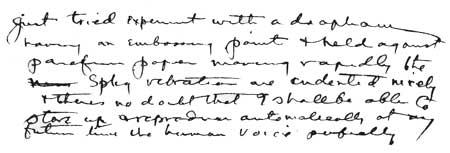 just tried experiment with a diaphram
having an embossing point & held against
parafin paper moving rapidly the
Spkg vibrations are indented nicely
& theres no doubt that I shall be able to
store up & reproduce automatically at any
future time the human voice perfectly